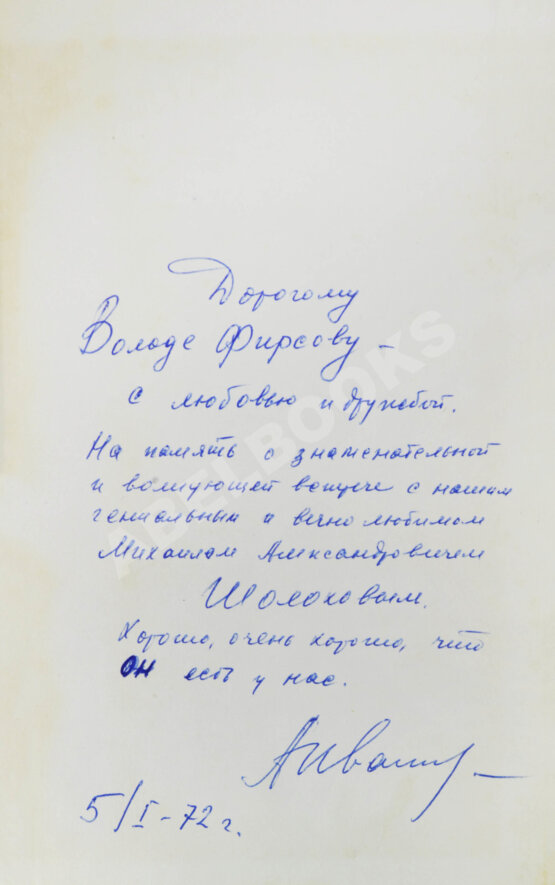 Дорогому
Володе Фирсову –
с любовью и дружбой.
На память о знаменательной
и волнующей встрече с нашим
гениальным и вечно любимом
Михаилом Александровичем
Шолоховым.
Хорошо, очень хорошо, что
ОН есть у нас.
АИванов
5/I-72 г.
ABELBOOKS